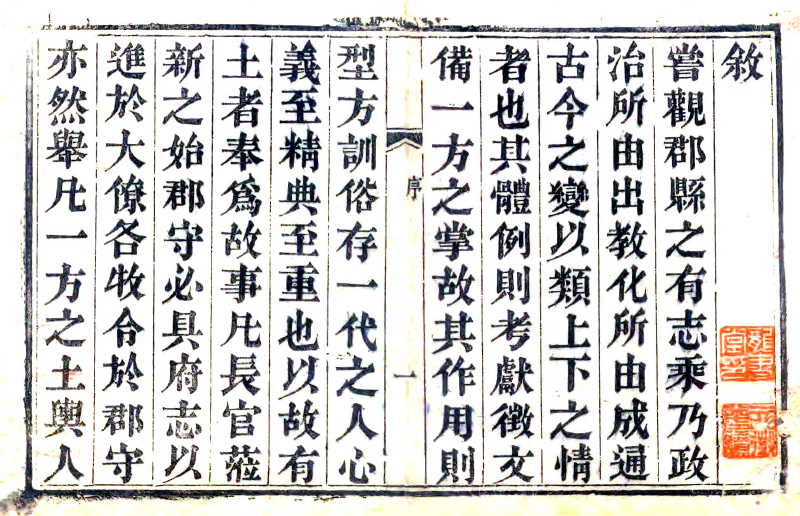 敘
嘗觀郡縣之有志乘乃政
治所由出教化所由成通
古今之變以類上下之情
者也其體例則考獻徵文
備一方之掌故其作用則
序
一
型方訓俗存一代之人心
義至精典至重也以故有
土者奉爲故事凡長官蒞
新之始郡守必具府志以
進於大僚各牧令於郡守
亦然舉凡一方之土輿人